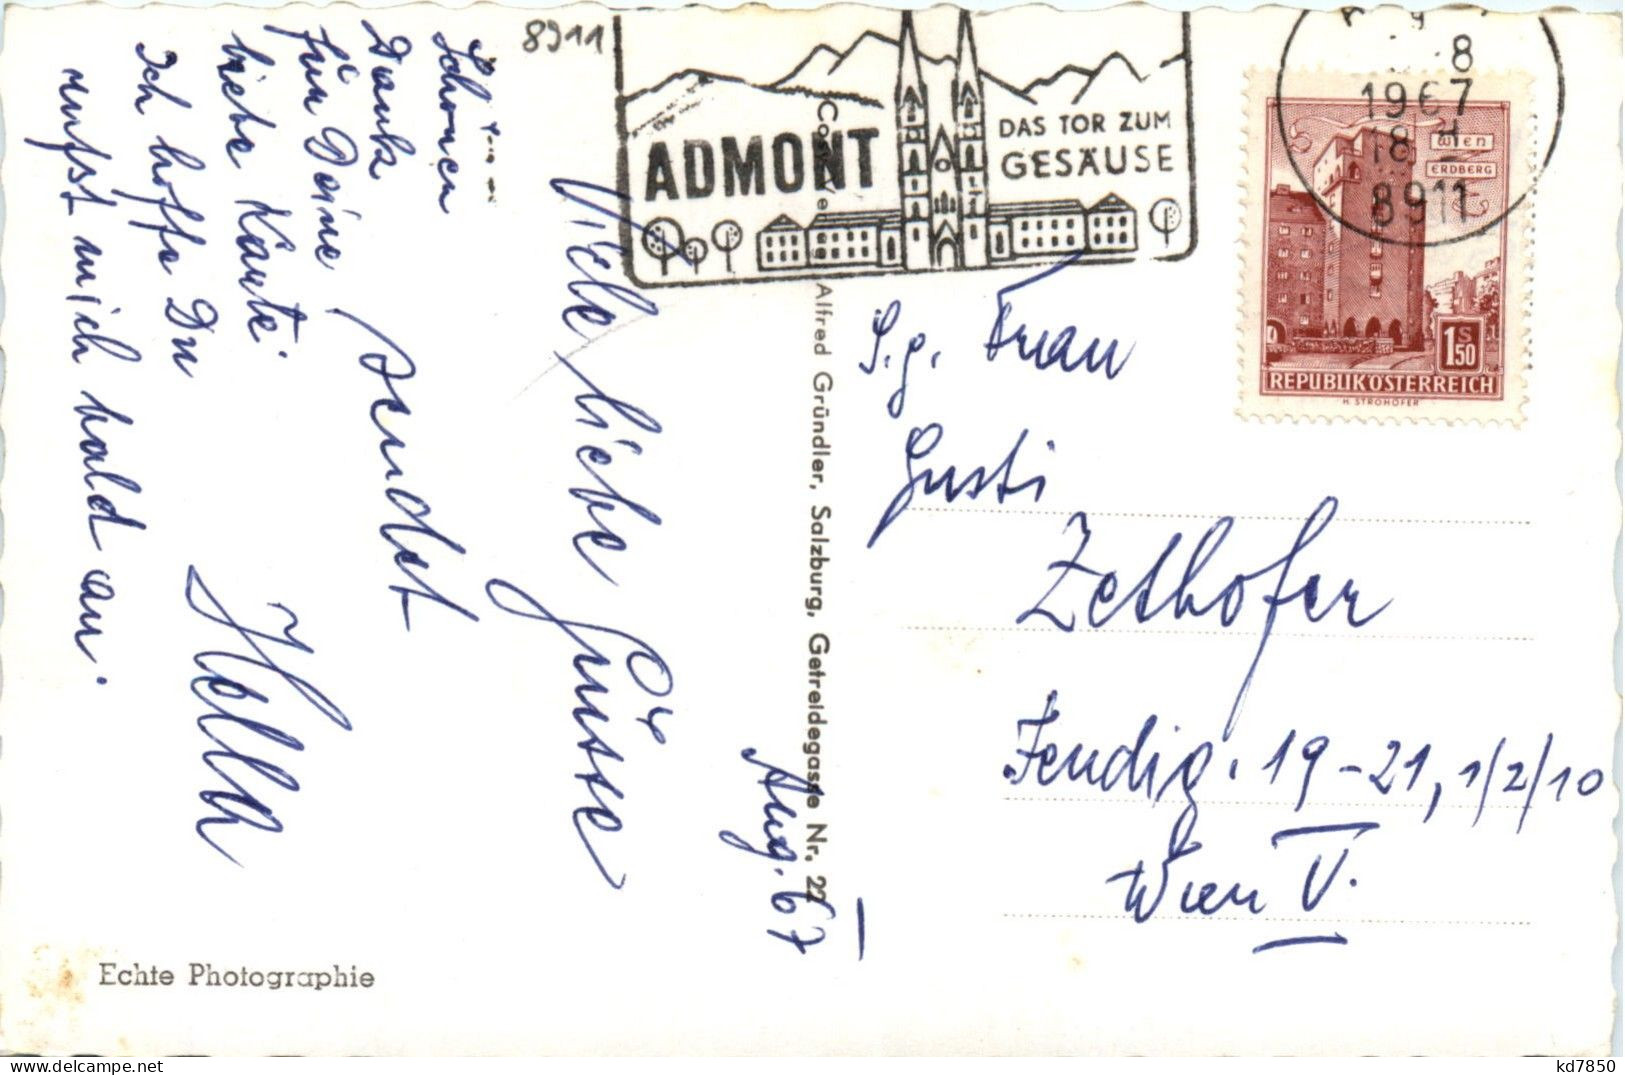 8911
ADMONT
DAS TOR ZUM
GESÄUSE
8
1967
18 H
8911
WIEN
ERDBERG
1 S 50
REPUBLIK ÖSTERREICH
H. STROHOFER
Schönen
Dank
für Deine
liebe Karte.
Ich hoffe Du
rufst mich bald an.
Viele liebe Grüsse
sendet
Hella
Aug. 67
Alfred Gründler, Salzburg, Getreidegasse Nr. 22
S.g. Frau
Gusti
Zethofer
Fendig. 19-21, 1/2/10
Wien V.
Echte Photographie
delcampe.net
kd7850